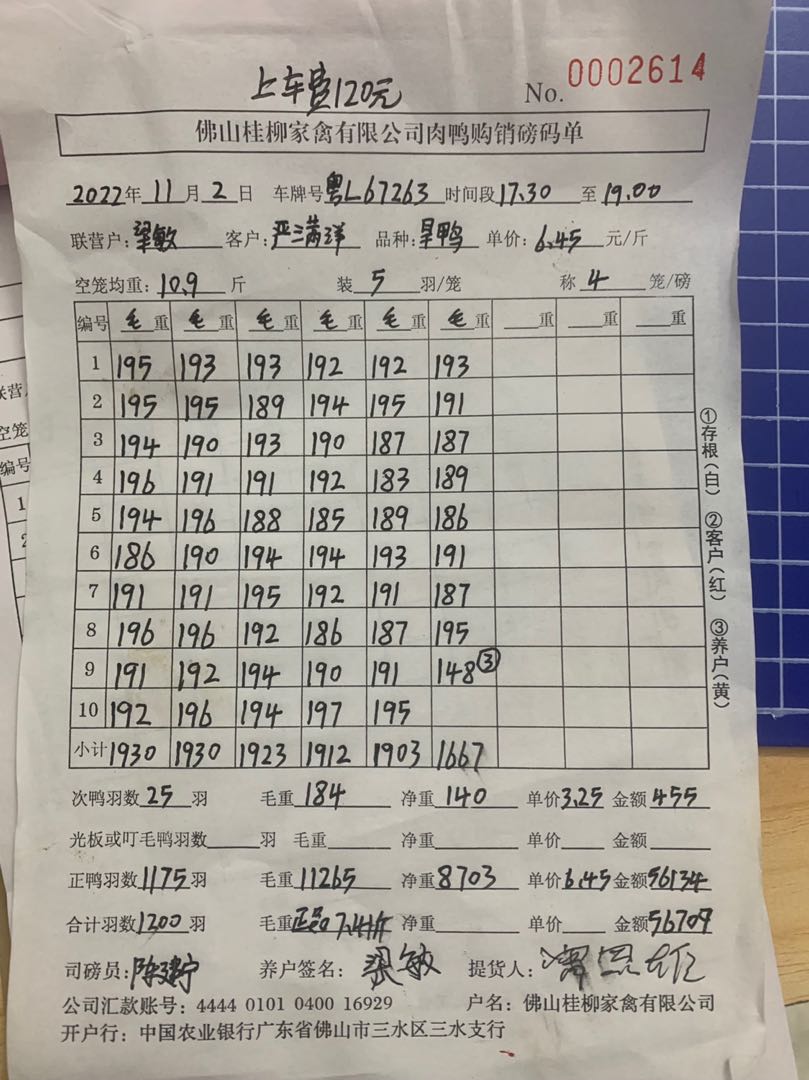 上车费120元
No. 0002614
佛山桂柳家禽有限公司肉鸭购销磅码单
2022年11月2日 车牌号粤L67263 时间段17.30至19.00
联营户:梁敏 客户:严三满洋 品种:旱鸭 单价:6.45元/斤
空笼均重:10.9斤 装5羽/笼 称4笼/磅
编号 毛重 毛重 毛重 毛重 毛重 毛重 重 重 重
1 195 193 193 192 192 193
2 195 195 189 194 195 191
3 194 190 193 190 187 187
4 196 191 191 192 183 189
5 194 196 188 185 189 186
6 186 190 194 194 193 191
7 191 191 195 192 191 187
8 196 196 192 186 187 195
9 191 192 194 190 191 148③
10 192 196 194 197 195
小计 1930 1930 1923 1912 1903 1667
次鸭羽数25羽 毛重184 净重140 单价3.25 金额455
光板或叮毛鸭羽数 羽 毛重 净重 单价 金额
正鸭羽数1175羽 毛重11265 净重8703 单价6.45 金额56134
合计羽数1200羽 毛重正品7.41斤 净重 单价 金额56709
司磅员:陈建宁 养户签名:梁敏 提货人:
公司汇款账号:4444 0101 0400 16929 户名:佛山桂柳家禽有限公司
开户行:中国农业银行广东省佛山市三水区三水支行
①存根(白) ②客户(红) ③养户(黄)
联营户
空笼
编号
1
2